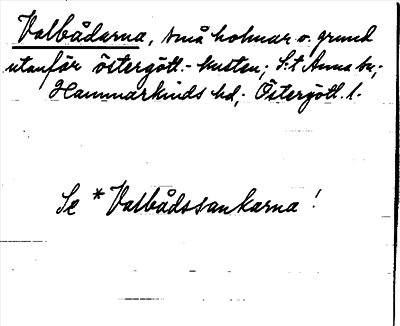 Valbådarna, små holmar o. grund
utanför östergötl.-kusten; S:t Anna sn;
Hammarkinds hd; Östergötl. l.
Se *Valbådssankarna!